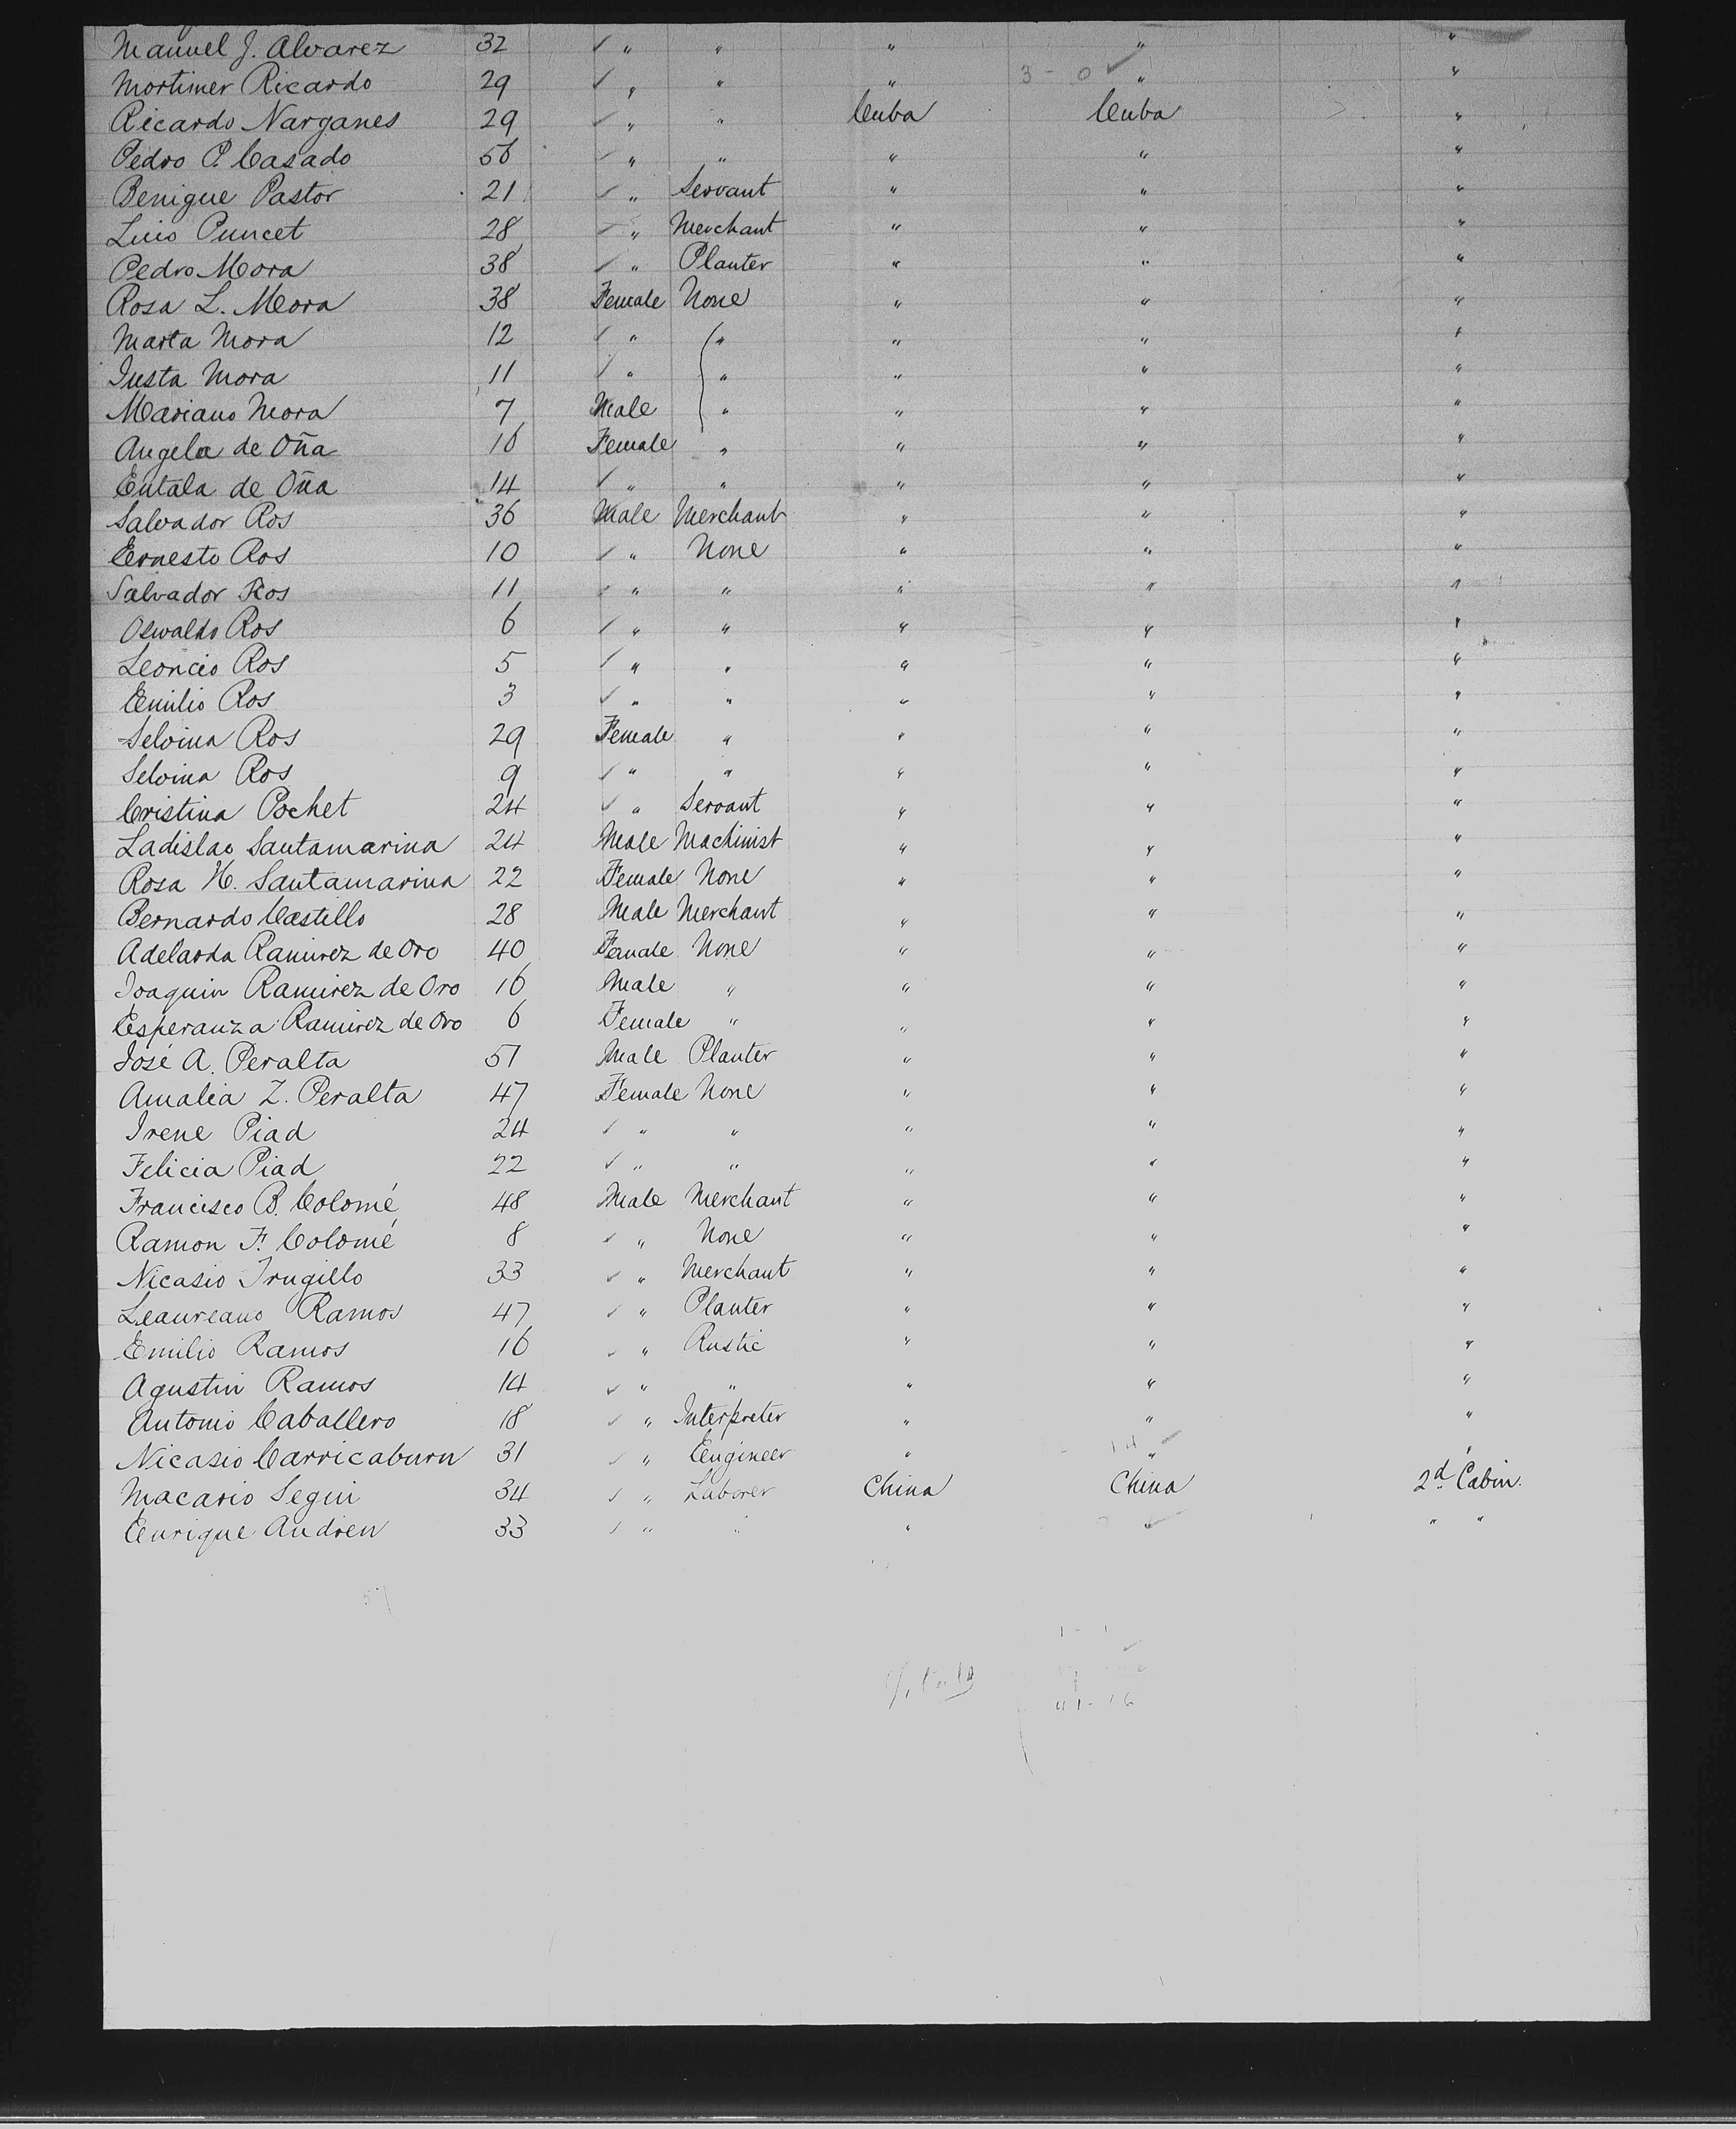 Manuel J. Alvarez 32 ✓ " " " " "
Mortimer Ricardo 29 ✓ " " " 3 - 0 ✓ " "
Ricardo Narganes 29 ✓ " " Cuba Cuba "
Pedro P. Casado 56 ✓ " " " " "
Benigue Pastor 21 ✓ " Servant " " "
Luis Puncet 28 ✓ " Merchant " " "
Pedro Mora 38 ✓ " Planter " " "
Rosa L. Mora 38 Female None " " "
Marta Mora 12 ✓ " " " " "
Justa Mora 11 ✓ " " " " "
Mariano Mora 7 Male " " " "
Angela de Oña 16 Female " " " "
Eulala de Oña 14 ✓ " " " " "
Salvador Ros 36 Male Merchant " " "
Ernesto Ros 10 ✓ " None " " "
Salvador Ros 11 ✓ " " " " "
Oswaldo Ros 6 ✓ " " " " "
Leoncio Ros 5 ✓ " " " " "
Emilio Ros 3 ✓ " " " " "
Selvina Ros 29 Female " " " "
Selvina Ros 9 ✓ " " " " "
Cristina Pochet 24 ✓ " Servant " " "
Ladislao Santamarina 24 Male Machinist " " "
Rosa H. Santamarina 22 Female None " " "
Bernardo Castillo 28 Male Merchant " " "
Adelarda Ramirez de Oro 40 Female None " " "
Joaquin Ramirez de Oro 16 Male " " " "
Esperanza Ramirez de Oro 6 Female " " " "
José A. Peralta 51 Male Planter " " "
Amalia Z. Peralta 47 Female None " " "
Irene Piad 24 ✓ " " " " "
Felicia Piad 22 ✓ " " " " "
Francisco B. Colomé 48 Male Merchant " " "
Ramon F. Colomé 8 ✓ " None " " "
Nicasio Trugillo 33 ✓ " Merchant " " "
Leaureano Ramos 47 ✓ " Planter " " "
Emilio Ramos 16 ✓ " Rustic " " "
Agustin Ramos 14 ✓ " " " " "
Antonio Caballero 18 ✓ " Interpreter " " "
Nicasio Carricaburu 31 ✓ " Engineer " - 14 ✓ " "
Macario Segui 34 ✓ " Laborer China China 2d Cabin.
Enrique Andreu 33 ✓ " " " " " "